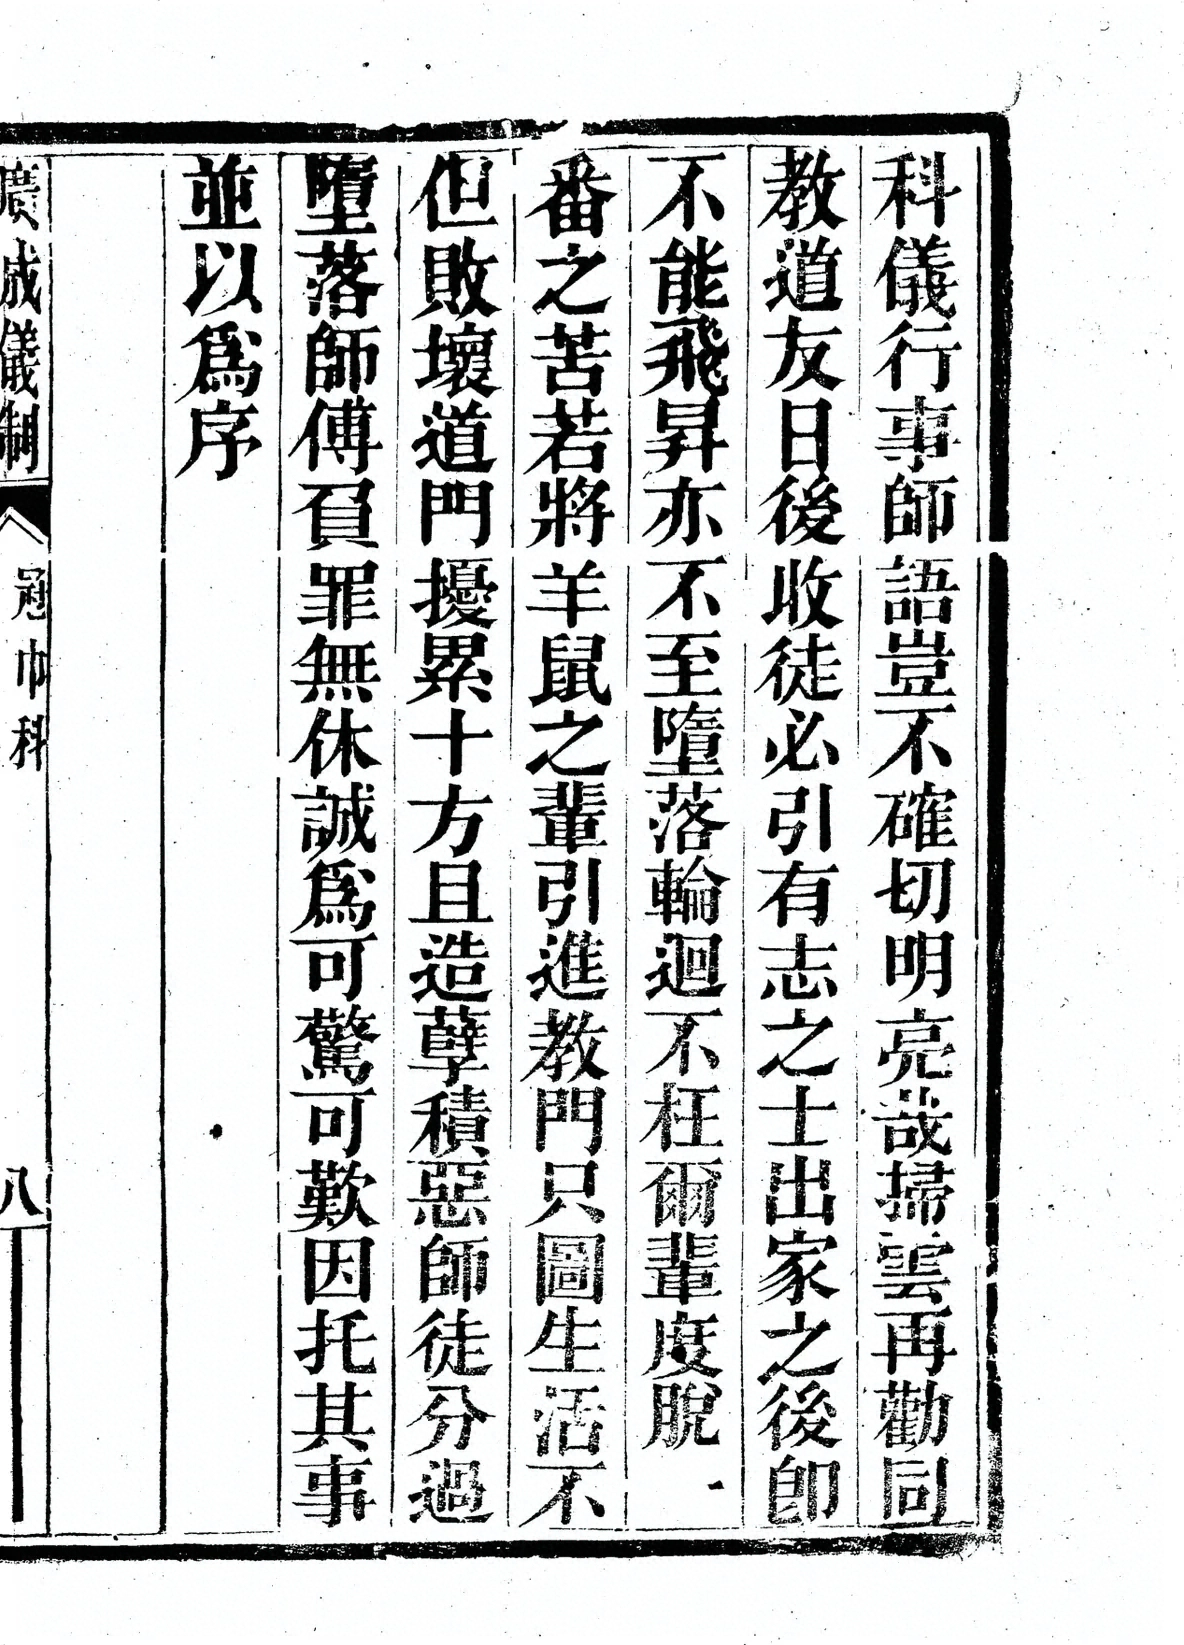 科儀行事師語豈不確切明亮哉掃雲再勸同
教道友日後收徒必引有志之士出家之後卽
不能飛昇亦不至墮落輪迴不枉爾輩度脫一
番之苦若將羊鼠之輩引進教門只圖生活不
但敗壞道門擾累十方且造孽積惡師徒分過
墮落師傅負罪無休誠爲可驚可歎因托其事
並以爲序
廣成儀制 冠巾科 八